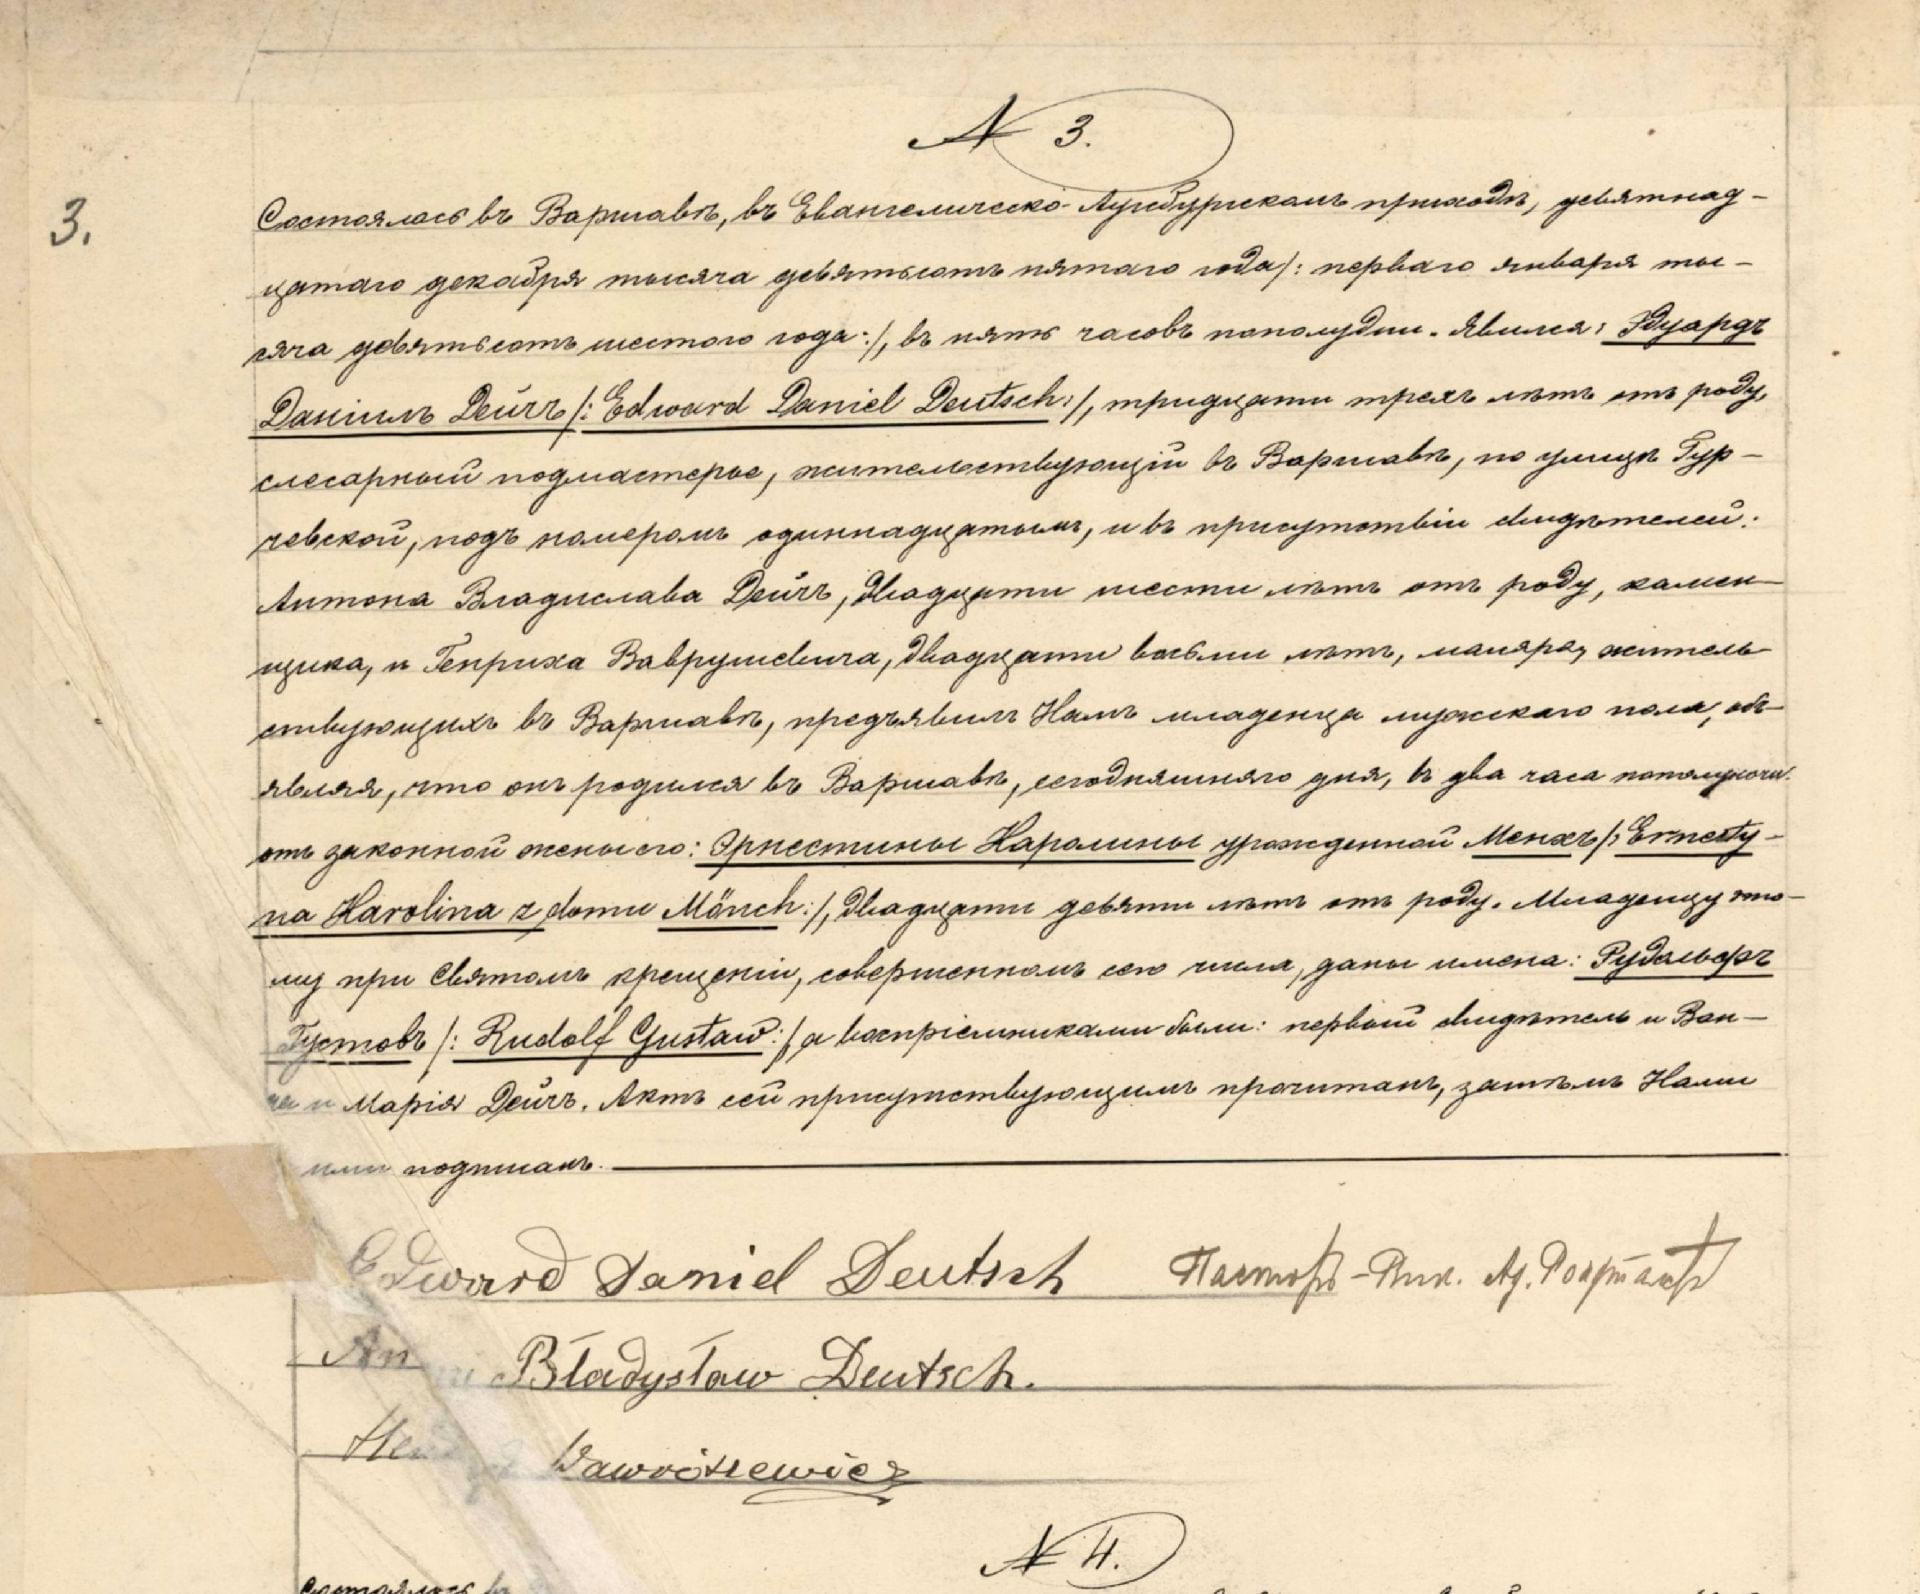 № 3.
3.
Состоялось въ Варшавѣ, въ Евангелическо-Аугсбургскомъ приходѣ, девятнад-
цатаго декабря тысяча девятьсотъ пятаго года /: перваго января ты-
сяча девятьсотъ шестого года :/, въ пять часовъ пополудни. Явился: Эдуардъ
Даніилъ Дейчъ /: Edward Daniel Deutsch :/, тридцати трехъ лѣтъ отъ роду,
слесарный подмастерье, жительствующій въ Варшавѣ, по улицѣ Гур-
чевской, подъ номеромъ одиннадцатымъ, и въ присутствіи свидѣтелей:
Антона Владислава Дейчъ, двадцати шести лѣтъ отъ роду, камен-
щика, и Генриха Ваврушевича, двадцати восьми лѣтъ, маляра, житель-
ствующихъ въ Варшавѣ, предъявилъ Намъ младенца мужскаго пола, объ-
являя, что онъ родился въ Варшавѣ, сегодняшняго дня, въ два часа пополуночи
отъ законной жены его: Эрнестины Каролины урожденной Менхъ /: Ernesty-
na Karolina z domu Mönch :/, двадцати девяти лѣтъ отъ роду. Младенцу это-
му при Святомъ крещеніи, совершенномъ сего числа, даны имена: Рудольфъ
Густавъ /: Rudolf Gustaw :/, а воспріемниками были: первый свидѣтель и Ван-
да и Марія Дейчъ. Актъ сей присутствующимъ прочитанъ, затѣмъ Нами
и ими подписанъ.
Edward Daniel Deutsch Пасторъ-Вик. Ад.
Władysław Deutsch.
Wawrószewicz
№ 4.
Состоялось въ